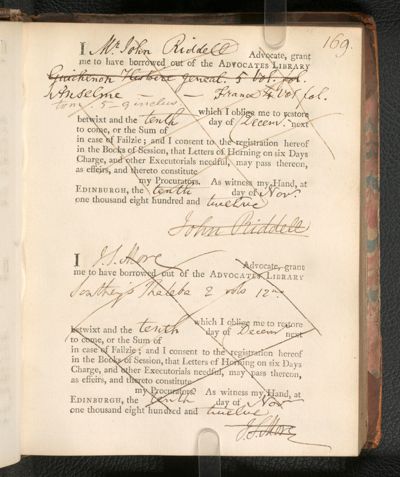 169.
I Mr. John Riddell Advocate, grant
me to have borrowed out of the ADVOCATES LIBRARY
Histoire geneal. 5 Vol. fol.
Anselme — — France 4 Vol fol.
tom. 5-9
which I oblige me to restore
betwixt and the tenth day of Decem. next
to come, or the Sum of
in case of Failzie; and I consent to the registration hereof
in the Books of Session, that Letters of Horning on six Days
Charge, and other Executorials needful, may pass thereon,
as effeirs, and thereto constitute
my Procurators. As witness my Hand, at
EDINBURGH, the tenth day of Nov.
one thousand eight hundred and twelve
John Riddell
I J.S. More Advocate, grant
me to have borrowed out of the ADVOCATES LIBRARY
Southey's Thalaba 2 vols 12mo
which I oblige me to restore
betwixt and the tenth day of Decem next
to come, or the Sum of
in case of Failzie; and I consent to the registration hereof
in the Books of Session, that Letters of Horning on six Days
Charge, and other Executorials needful, may pass thereon,
as effeirs, and thereto constitute
my Procurators. As witness my Hand, at
EDINBURGH, the tenth day of Nov
one thousand eight hundred and twelve
J.S. More